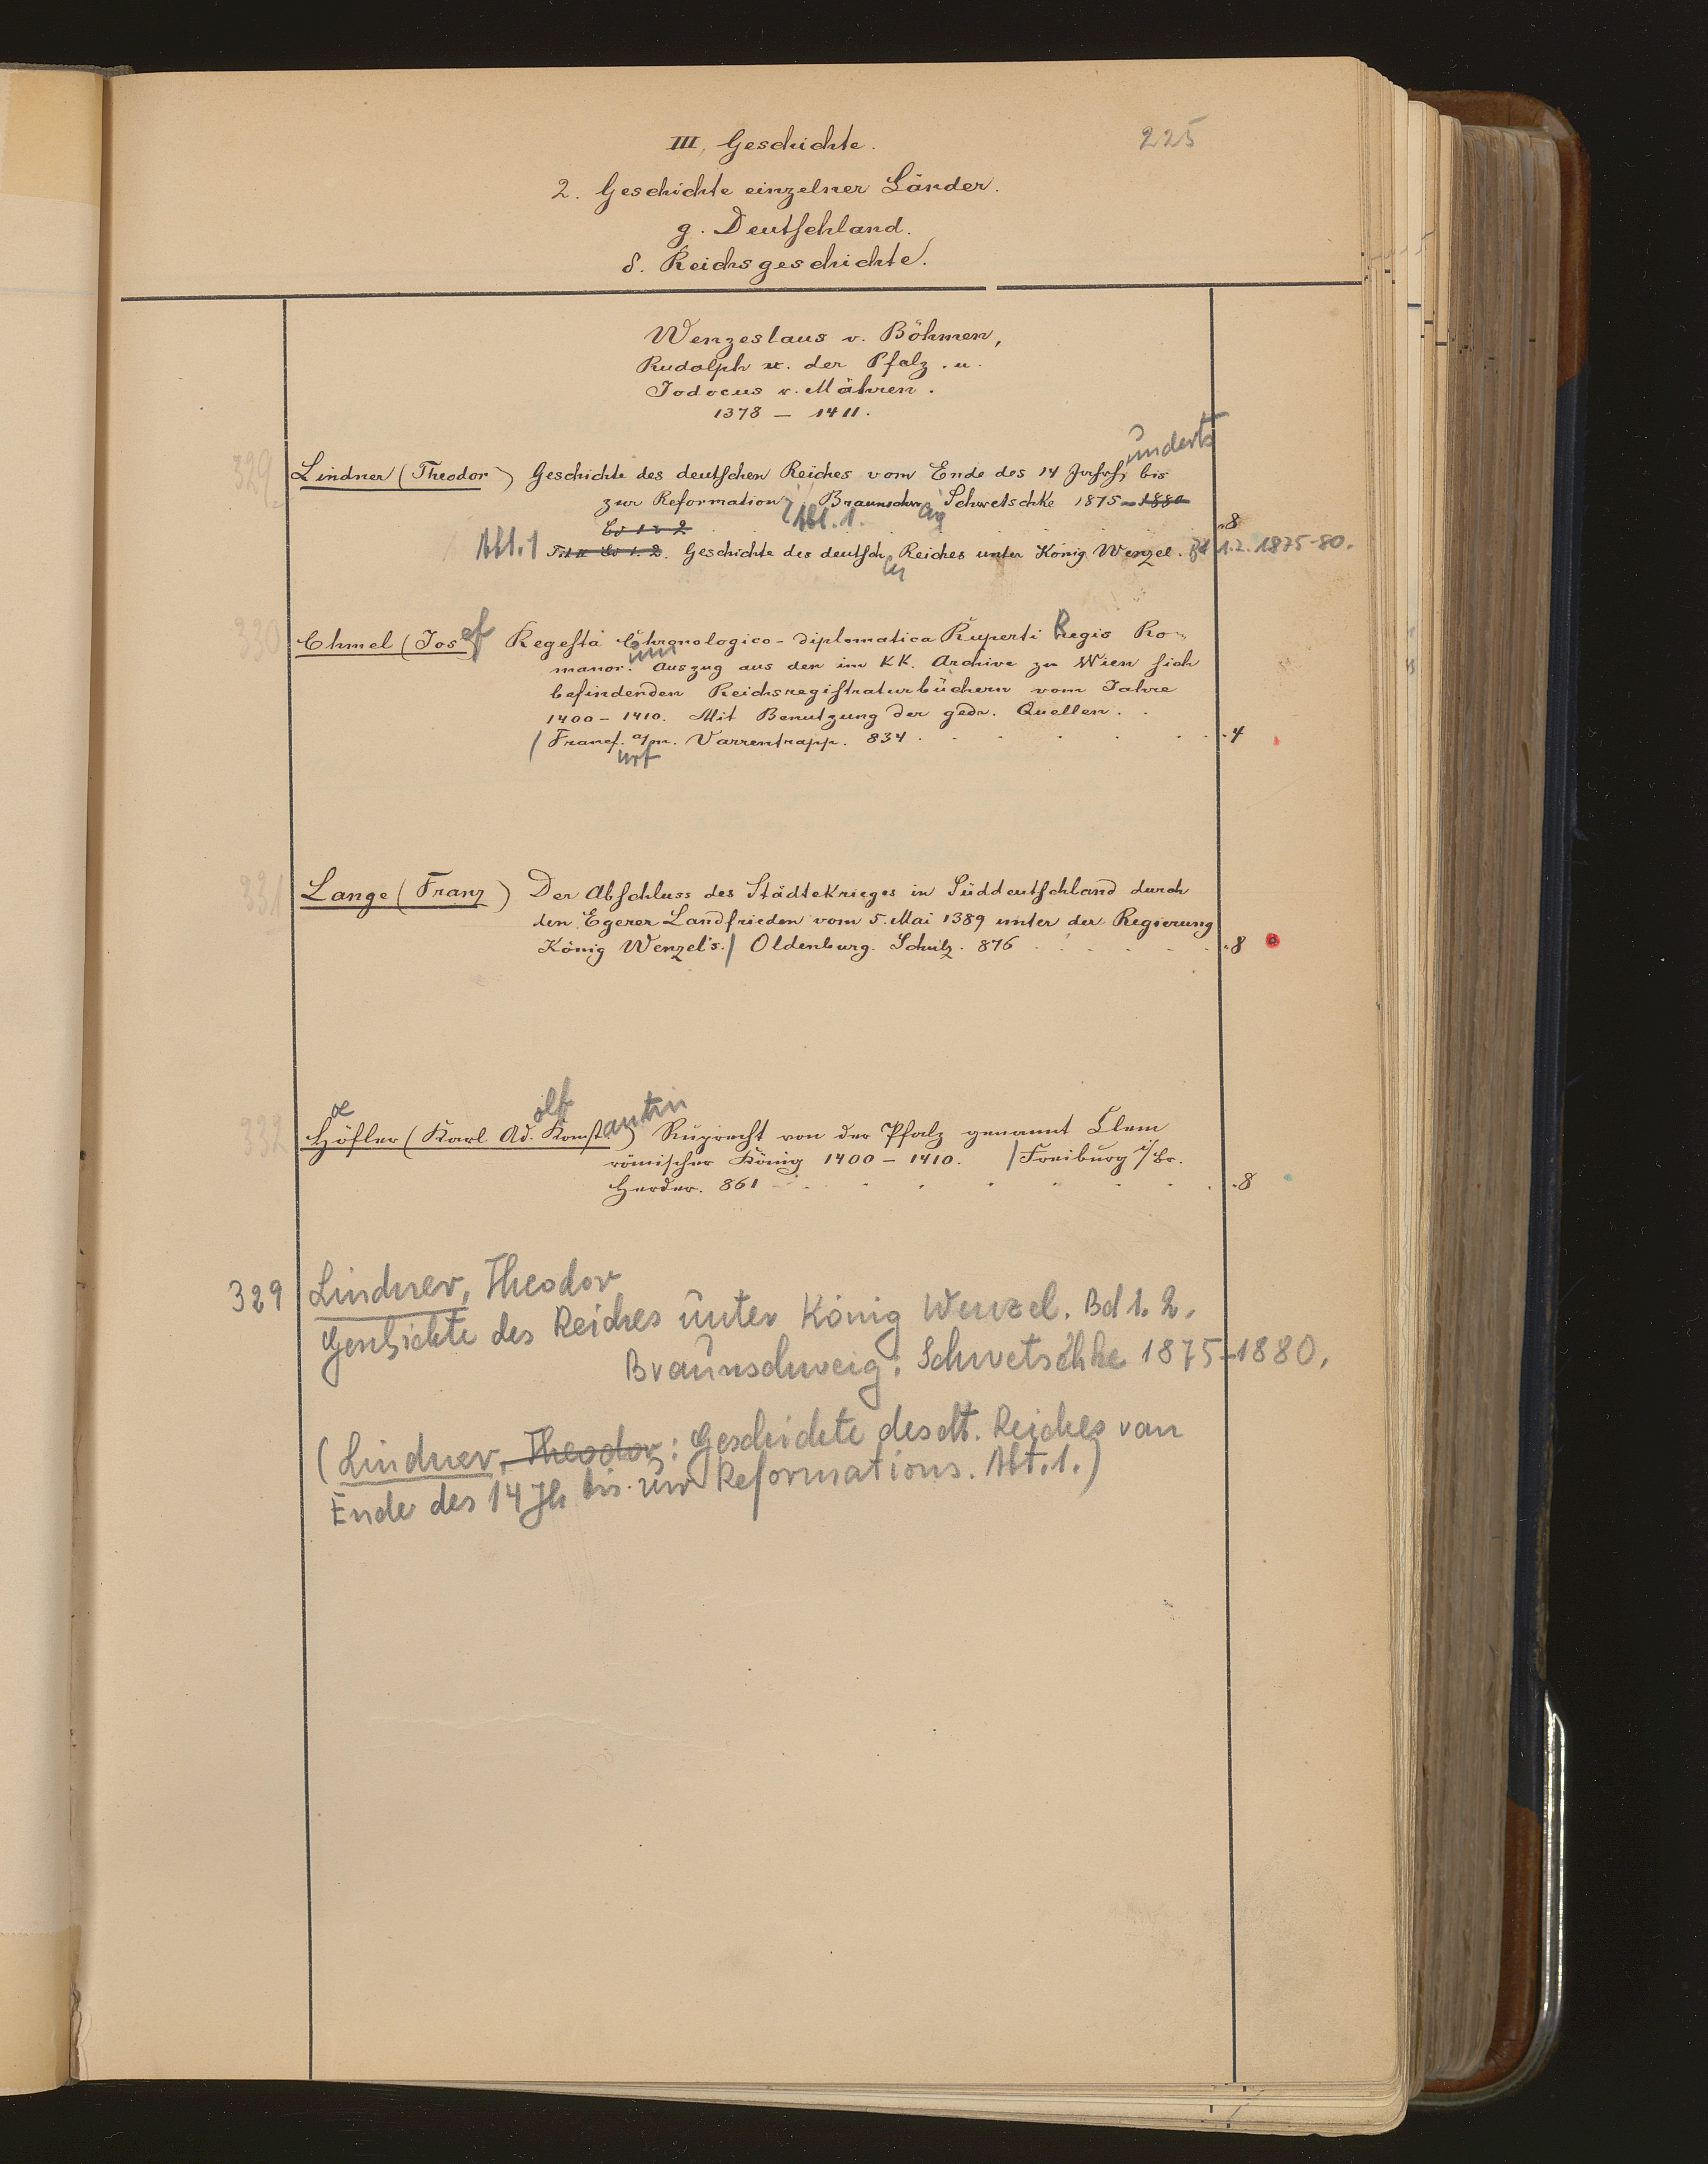 225
III. Geschichte.
2. Geschichte einzelner Länder.
g. Deutschland.
δ. Reichsgeschichte.
Wenzeslaus v. Böhmen,
Rudolph v. der Pfalz . u.
Jodocus v. Mähren.
1378 — 1411.
underts
329 Lindner (Theodor) Geschichte des deutschen Reiches vom Ende des 14 Jahrh. bis
zur Reformation Abt. 1. Braunschweig Schwetschke 1875-1880
Bd 1 u 2 8
Abt. 1 Bd 1. 2. Geschichte des deutschen Reiches unter König Wenzel. Bd 1.2. 1875-80.
330 Chmel (Josef Regesta Chronologico-diplomatica Ruperti Regis Ro-
manorum. Auszug aus den im KK. Archive zu Wien sich
befindenden Reichsregistraturbüchern vom Jahre
1400 - 1410. Mit Benutzung der gedr. Quellen.
/ Francf. a/m. Varrentrapp. 834 4
urt
331 Lange (Franz) Der Abschluss des Städtekrieges in Süddeutschland durch
den Egerer Landfrieden vom 5. Mai 1389 unter der Regierung
König Wenzel's. / Oldenburg. Schulz. 876 8
oe olf
332 Höfler (Karl Ad. Konstantin) Ruprecht von der Pfalz genannt Clem
römischer König 1400 - 1410. / Freiburg i/Br.
Herder. 861 8
329 Lindner, Theodor
Geschichte des Reiches unter König Wenzel. Bd 1. 2.
Braunschweig: Schwetschke 1875-1880.
(Lindner, Theodor: Geschichte des dt. Reiches van
Ende des 14 Jh bis zur Reformations. Abt. 1.)